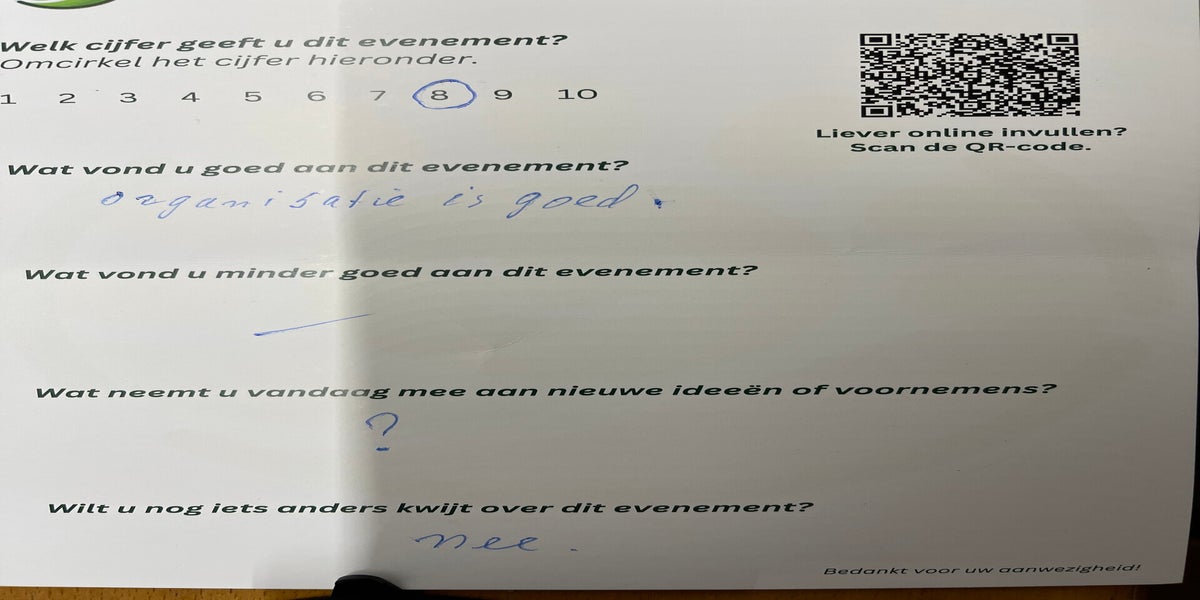 Welk cijfer geeft u dit evenement?
Omcirkel het cijfer hieronder.
1 2 3 4 5 6 7 8 9 10
Liever online invullen?
Scan de QR-code.
Wat vond u goed aan dit evenement?
organisatie is goed.
Wat vond u minder goed aan dit evenement?
—
Wat neemt u vandaag mee aan nieuwe ideeën of voornemens?
?
Wilt u nog iets anders kwijt over dit evenement?
nee.
Bedankt voor uw aanwezigheid!